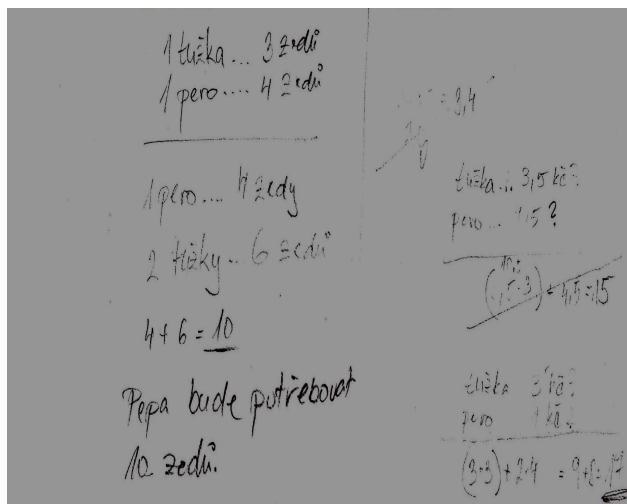 1 tužka... 3 zedů
1 pero.... 4 zedů
1 pero.... 4 zedy
2 tužky... 6 zedů
4+6=10
Pepa bude putřebovat
10 zedů.
= 3,4
tužka... 3,5 kč?
pero... 4,5?
+ 4,5 = 15
tužka 3 kč?
pero 4 kč?
(3·3)+2·4 = 9+8=17